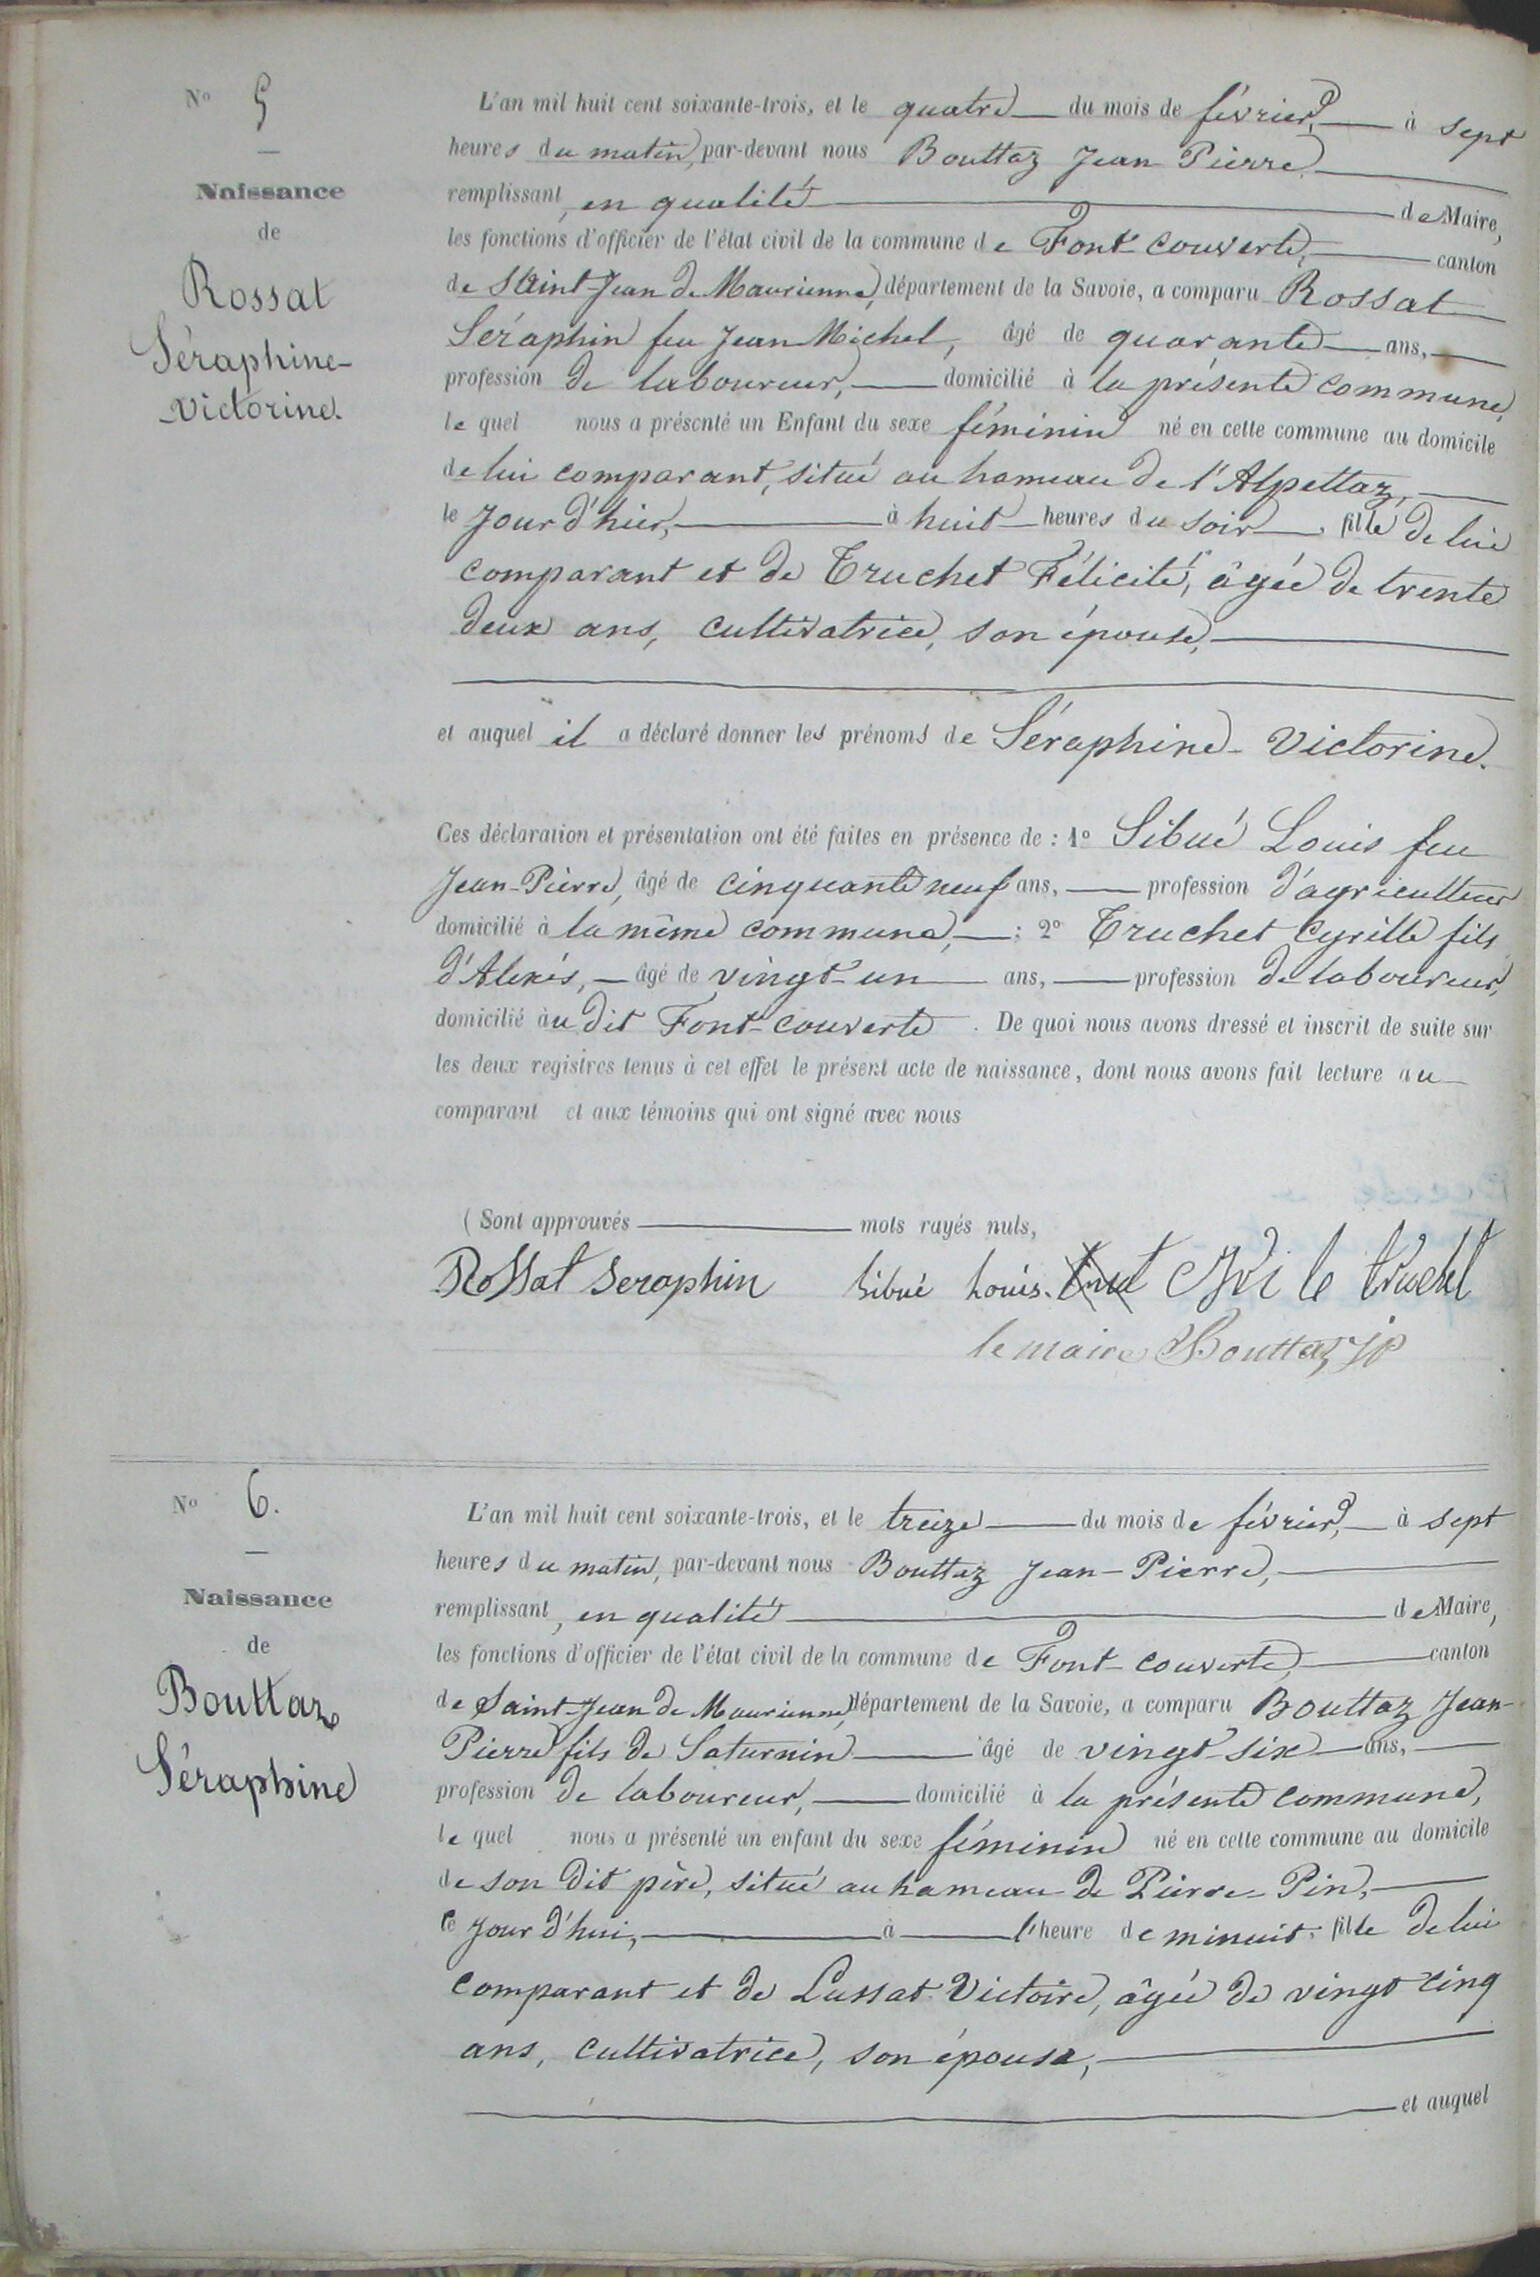 N° 5
Naissance
de
Rossat
Séraphine-
Victorine.
L'an mil huit cent soixante-trois, et le quatre du mois de février, à sept
heures du matin, par-devant nous Bouttaz Jean Pierre
remplissant, en qualité de Maire,
les fonctions d'officier de l'état civil de la commune de Font-couverte, canton
de Saint-Jean de Maurienne, département de la Savoie, a comparu Rossat
Séraphin feu Jean Michel, âgé de quarante ans,
profession de laboureur, domicilié à la présente commune,
le quel nous a présenté un Enfant du sexe féminin né en cette commune au domicile
de lui comparant, situé au hameau de l'Alpettaz,
le jour d'hier, à huit heures du soir, fille de lui
comparant et de Truchet Félicité, âgée de trente
deux ans, cultivatrice, son épouse,
et auquel il a déclaré donner les prénoms de Séraphine-Victorine.
Ces déclaration et présentation ont été faites en présence de : 1° Sibué Louis feu
Jean-Pierre, âgé de cinquante neuf ans, profession d'agriculteur
domicilié à la même commune, : 2° Truchet Cyrille fils
d'Alexis, âgé de vingt-un ans, profession de laboureur,
domicilié au dit Font-couverte. De quoi nous avons dressé et inscrit de suite sur
les deux registres tenus à cet effet le présent acte de naissance, dont nous avons fait lecture au
comparant et aux témoins qui ont signé avec nous
(Sont approuvés mots rayés nuls,
Rossat Seraphin Sibué Louis. truchet
le maire Bouttaz JP
N° 6.
Naissance
de
Bouttaz
Séraphine
L'an mil huit cent soixante-trois, et le treize du mois de février, à sept
heures du matin, par-devant nous Bouttaz Jean-Pierre,
remplissant, en qualité de Maire,
les fonctions d'officier de l'état civil de la commune de Font-couverte, canton
de Saint-Jean de Maurienne, département de la Savoie, a comparu Bouttaz Jean-
Pierre fils de Saturnin âgé de vingt-six ans,
profession de laboureur, domicilié à la présente commune,
le quel nous a présenté un enfant du sexe féminin né en cette commune au domicile
de son dit père, situé au hameau de Pierre-Pin,
ce jour d'hui, à l'heure de minuit, fille de lui
comparant et de Lussat Victoire, âgée de vingt cinq
ans, cultivatrice, son épouse,
et auquel